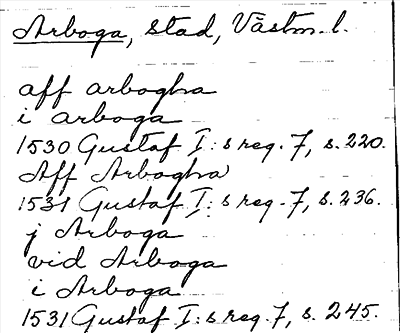 Arboga, stad, Västm. l.
aff arbogha
i arboga
1530 Gustaf I:s reg. 7, s. 220.
Aff Arbogha
1531 Gustaf I:s reg. 7, s. 236.
j Arboga
vid Arboga
i Arboga
1531 Gustaf I:s reg. 7, s. 245.